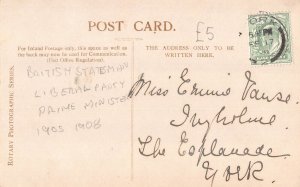 POST CARD.
£5
For Inland Postage only, this space as well as the back may now be used for Communication. (Post Office Regulation).
THE ADDRESS ONLY TO BE WRITTEN HERE.
BRITISH STATESMAN
LIBERAL PARTY
PRIME MINISTER
1905 1908
ROTARY PHOTOGRAPHIC SERIES.
Miss Ennie Vause,
Ingholme
The Esplanade
York